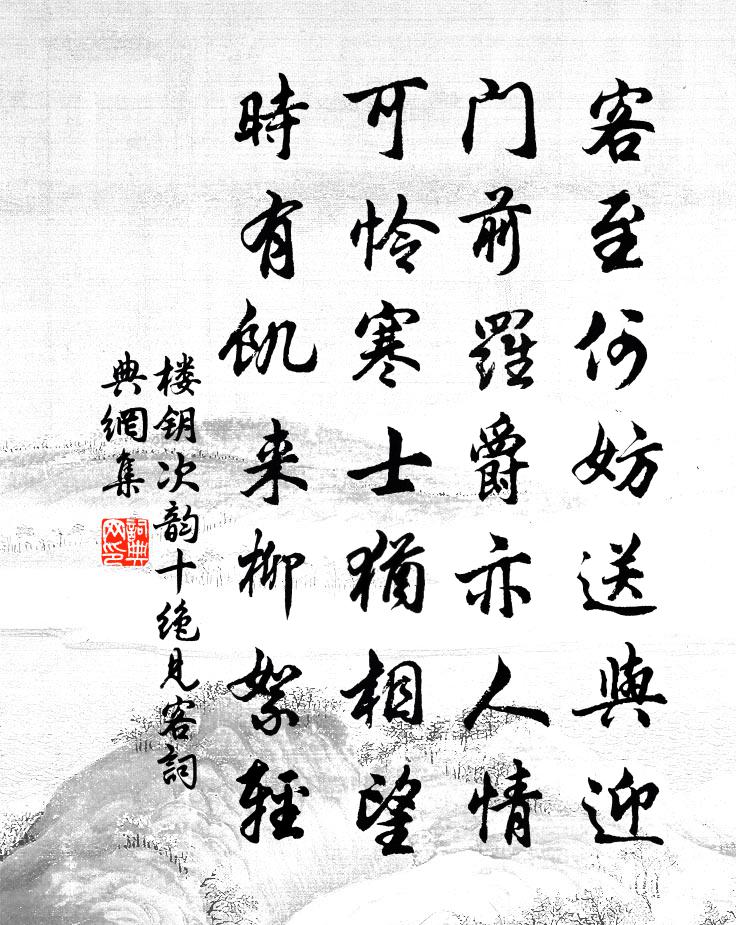 客至何妨送與迎
門前羅爵亦人情
可怜寒士猶相望
時有飢来柳絮輕
楼钥次韵十绝见客詞
典網集
詞典网印